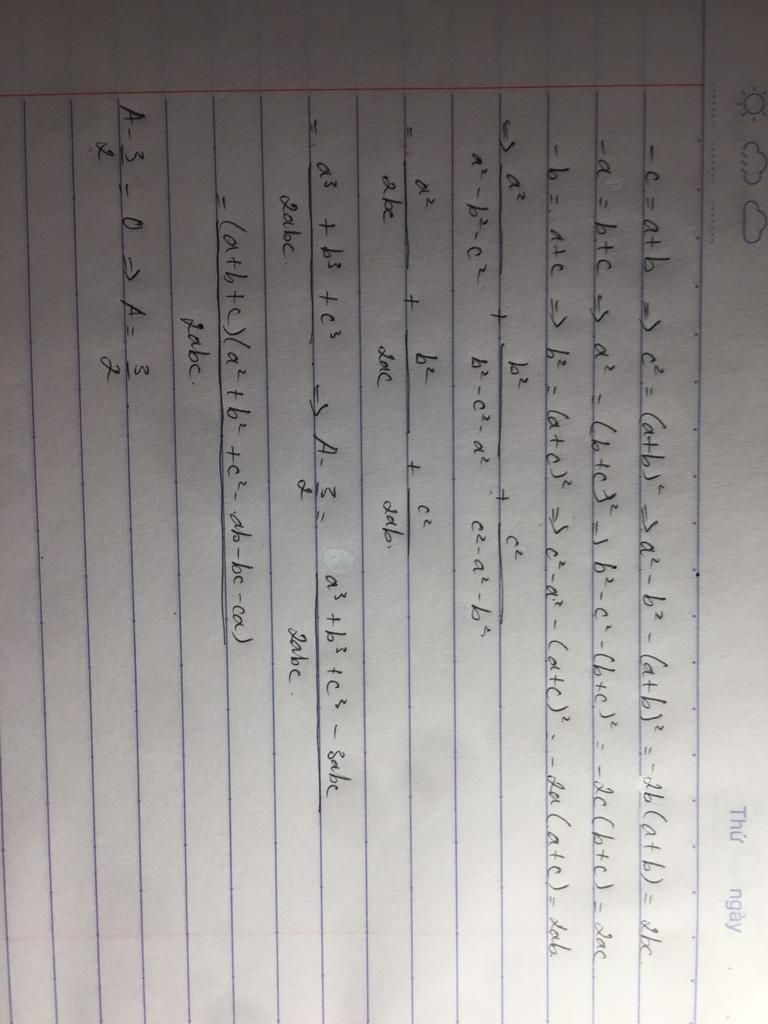 Thứ ngày
- c = a+b => c² = (a+b)² => a² - b² - (a+b)² = -2b(a+b) = 2bc
- a = b+c => a² = (b+c)² => b² - c² - (b+c)² = -2c(b+c) = 2ac
- b = a+c => b² = (a+c)² => c² - a² - (a+c)² = -2a(a+c) = 2ab.
=> a²/(a² - b² - c²) + b²/(b² - c² - a²) + c²/(c² - a² - b²)
= a²/2bc + b²/2ac + c²/2ab.
= (a³ + b³ + c³)/2abc. => A - 3/2 = (a³ + b³ + c³ - 3abc)/2abc.
= (a+b+c)(a² + b² + c² - ab - bc - ca)/2abc.
A - 3/2 = 0 => A = 3/2